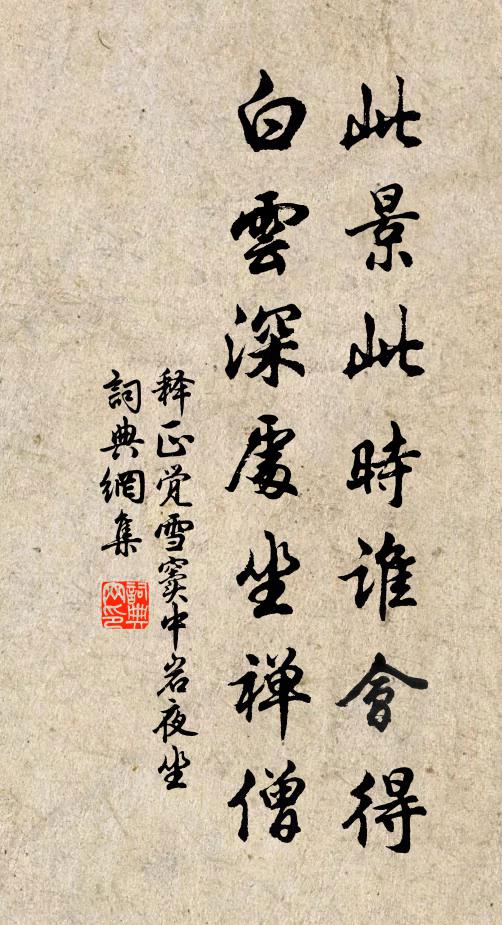 此景此時誰會得
白雲深處坐禅僧
释正觉雪窦中岩夜坐
詞典網集
詞典网印